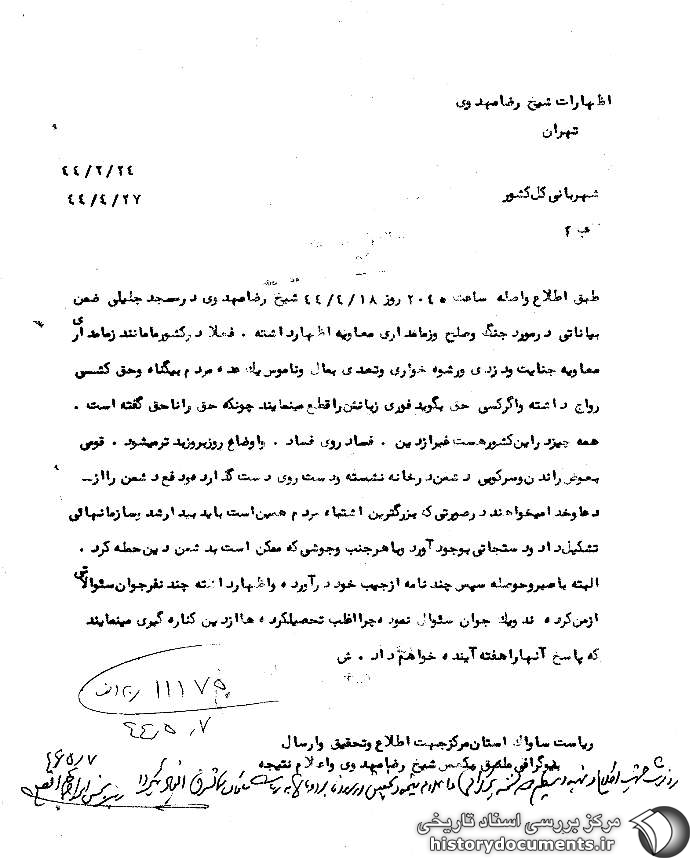 اظهارات شیخ رضا مهدوی
تهران
٤٤/٢/٢٤
٤٤/٤/٢٧
شهربانی کل کشور
طبق اطلاع واصله ساعت ٢٠٤٥ روز ٤٤/٤/١٨ شیخ رضا مهدوی در مسجد جلیلی ضمن
بیاناتی در مورد جنگ و صلح و زمامداری معاویه اظهار داشته . فعلا در کشور ما مانند زمامداری
معاویه جنایت و دزدی و رشوه خواری و تعدی بمال و ناموس یک عده مردم بیگناه و حق کشی
رواج داشته و اگر کسی حق بگوید فوری زبانش را قطع مینمایند چونکه حق را ناحق گفته است .
همه چیز در این کشور هست غیر از دین . فساد روی فساد . و اوضاع روز بروز بدتر میشود . قومی
بعوض راندن و سرکوبی دشمن در خانه نشسته و دست روی دست گذارده و دفع دشمن را از
دعا و خدا میخواهند در صورتی که بزرگترین اشتباه مردم همین است باید بیدار شد و سازمانهائی
تشکیل داد و دستجاتی بوجود آورد و با هر جنب وجوشی که ممکن است بدشمن دین حمله کرد .
البته با صبر و حوصله سپس چند نامه از جیب خود درآورده و اظهار داشته چند نفر جوان سئوالاتی
از من کرده‌اند و یک جوان سئوال نموده چرا اغلب تحصیلکرده‌ها از دین کناره گیری مینمایند
که پاسخ آنها را هفته آینده خواهم داد . ش
١١١٧٥
٤٤/٥/٧
ریاست ساواک استان مرکز جهت اطلاع و تحقیق و ارسال
بیوگرافی ملصق بعکس شیخ رضا مهدوی و اعلام نتیجه
مرکز بررسی اسناد تاریخی
historydocuments.ir